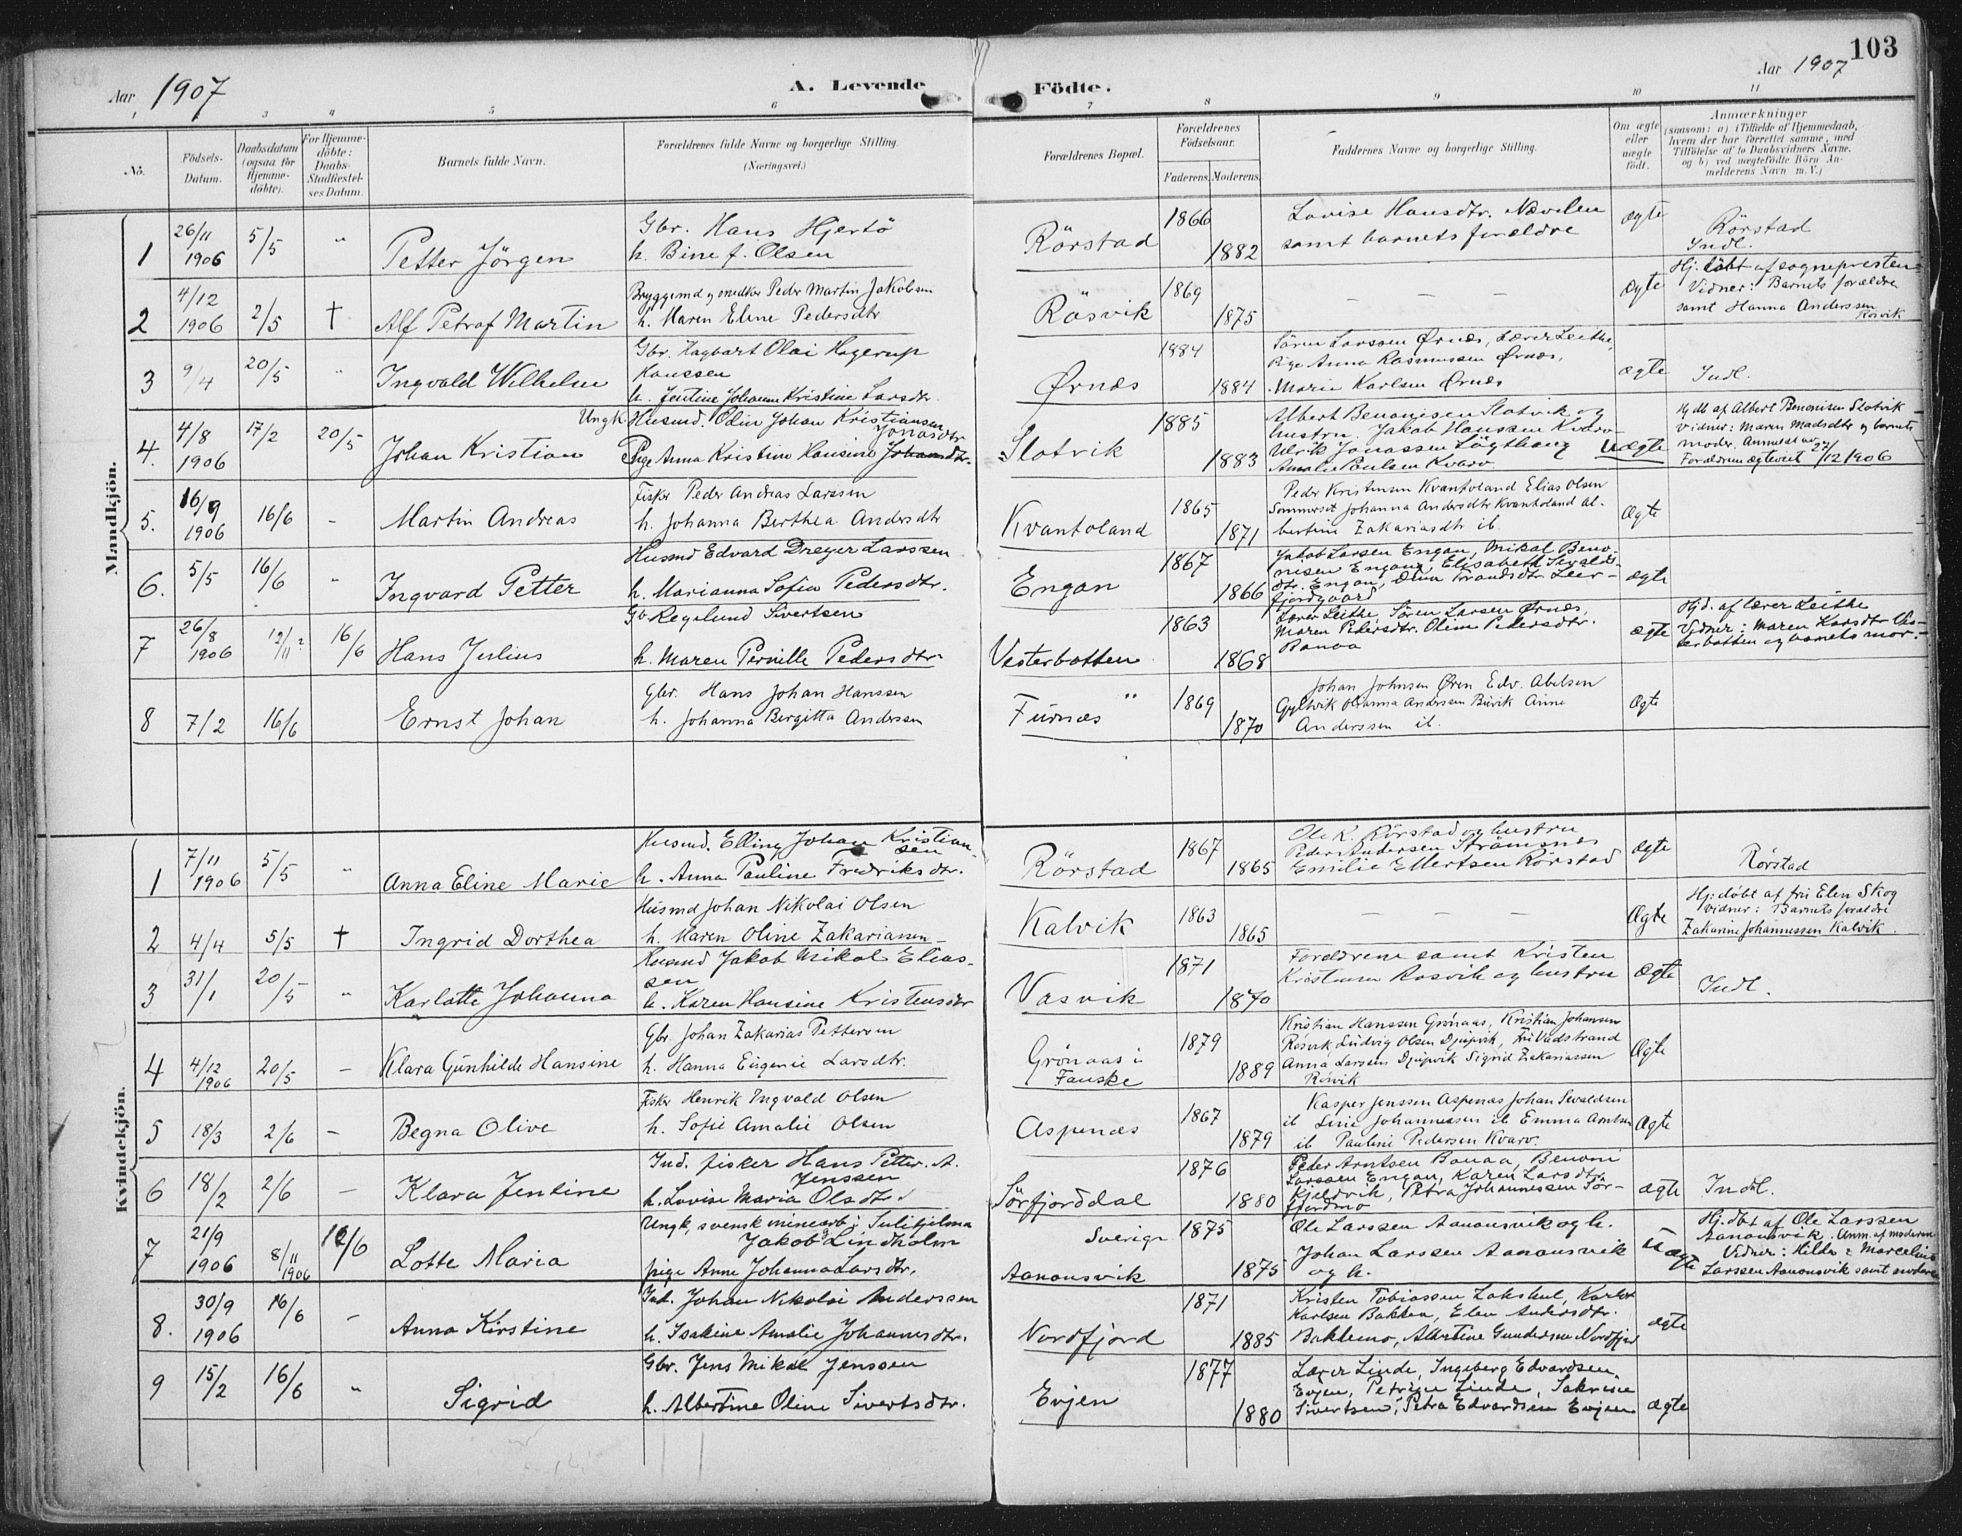 103
Aar 1907
A. Levende Födte.
Aar 1907
1 3 4 5 6 7 8 9 10 11
No.
Födsels-Datum.
Daabsdatum (ogsaa for Hjemme-döbte).
For Hjemme-döbte: Daabs-Stadfæstel-ses Datum.
Barnets fulde Navn.
Forældrenes fulde Navne og borgerlige Stilling. (Næringsvei.)
Forældrenes Bopæl.
Forældrenes Födselsaar. Faderens. Moderens.
Faddernes Navne og borgerlige Stilling.
Om ægte eller uægte födt.
Anmærkninger
(saasom: a) i Tilfælde af Hjemmedaab, hvem der har forrettet samme, med Tilföielse af to Daabsvidners Navne, og b) ved uægtefödte Börn An-melderens Navn m. V.)
Mandkjön.
1 26/11 1906 5/5 " Petter Jörgen
Gbr. Hans Hjertö
h. Bine f. Olsen
Rörstad 1866 1882
Lovise Hansdtr. Nævelen
samt barnets forældre
ægte
Rörstad
Indl.
2 4/12 1906 2/5 † Alf Petrof Martin
Bryggemd og snedker Peder Martin Jakobsen
h. Maren Eline Pedersdtr
Røsvik 1869 1875
— — —
Ægte
Hj. döbt af sognepresten
Vidner: Barnets forældre
samt Hanna Anderssen
Røsvik
3 9/4 20/5 " Ingvald Wilhelm
Gbr. Hagbart Olai Hagerup
Hanssen
h. Jentine Johanne Kristine Larsdtr.
Ørnæs 1884 1884
Sören Larssen Ørnæs, Lærer Leithe,
Pige Anna Rasmussen Ørnæs,
Marie Karlsen Ørnæs
ægte
Indl.
4. 4/8 1906 17/2 20/5 Johan Kristian
Ungk Husmd. Odin Johan Kristiansen
Jonasdtr
Pige Anna Kristine Hansine
Slotvik 1885 1883
Albert Benonisen Slotvik og
hustru Jakob Hanssen Kvarv
Ulrik Jonassen Lögthaug
Amalie Paulsen Kvarv
Uægte
Hj. db af Albert Benonisen Slotvik
Vidner: Maren Madsdtr og barnets
moder.
Forældrene ægteviet 27/12 1906
5. 16/9 1906 16/6 - Martin Andreas
Fisker Peder Andreas Larssen
h. Johanna Berthea Andersdtr
Kvantoland 1865 1871
Peder Kristensen Kvantoland Elias Olsen
Sommerset Johanna Andersdtr Kvantoland Al-
bertine Zakariasdtr ib.
Ægte
6. 5/5 16/6 " Ingvard Petter
Husmd Edvard Dreyer Larssen
h. Marianna Sofia Pedersdtr.
Engan 1867 1866
Jakob Larsen Engan, Mikal Beno-
nisen Engan, Elisabeth Sivalds-
dtr. Engan, Trondsdtr Leer-
fjordgaard
ægte
7 26/8 1906 12/11? 16/6 Hans Julius
Gb. Regelund Sivertsen
h. Maren Pernille Pedersdtr.
Vesterbotten 1863 1868
Lærer Leithe, Sören Larsen Ørnes,
Maren Pedersdtr. Oline Pedersdtr.
Bonaa
ægte
Hjd. af lærer Leithe
Vidner: Maren Larsdtr Ves-
terbotten og barnets mor.
8 7/2 16/6 Ernst Johan
Gbr. Hans Johan Hanssen
h. Johanna Bergitta Andersen
Furnæs " 1869 1870
Johan Johnsen Øren Edv. Abelsen
Gyltvik Johanna Anderssen Bisvik Anne
Anderssen ib.
Ægte
Kvindekjön.
1 7/11 1906 5/5 " Anna Eline Marie
Husmd. Elling Johan Kristian-
sen
h. Anna Pauline Fredriksdtr.
Rörstad 1867 1865
Ole K. Rörstad og hustru
Peder Andersen Strömsnes
Emilie Ellertsen Rörstad
ægte
Rörstad
2 4/4 5/5 † Ingrid Dorthea
Husmd Johan Nikolai Olsen
h. Maren Oline Zakariassen
Kalvik 1863 1865
— — —
Ægte
Hj: döbt af fru Elen Skog
Vidner: Barnets forældre
Zakarine Johannessen Kalvik.
3 31/1 20/5 " Karlotte Johanna
Husmd Jakob Mikal Elias-
sen
h. Karen Hansine Kristensdtr
Vasvik 1871 1870
Forældrene samt Kristen
Kristensen Rosvik og hustru
ægte
Indl.
4 4/12 1906 20/5 - Klara Gunhilde Hansine
Gbr. Johan Zakarias Pettersen
h. Hanna Eugenie Larsdtr.
Grönaas i
Fauske 1879 1889
Kristian Hanssen Grønaas, Kristian Johansen
Røsvik Ludvig Olsen Djupvik, Fru Vadstrand
Anna Larsen Djupvik Sigrid Zakariassen
Røsvik
Ægte
5 18/3 2/6 - Begna Olive
Fisker Henrik Ingvald Olsen
h. Sofie Amalie Olsen
Aspenæs 1867 1879
Kasper Jenssen Aspenæs Johan Sivaldsen
ib Line Johannessen ib Emma Arntsen
ib Pauline Pedersen Kvarv.
Ægte
6 18/2 2/6 - Klara Jentine
Ind. fisker Hans Petter A.
Jenssen
h. Lovise Maria Olsdtr.
Sörfjorddal 1876 1880
Peder Arntsen Bonaa, Benoni
Larssen Engan, Karen Larsdtr
Kjeldvik, Petra Johannessen Sör-
fjordmo
ægte
Indl.
7 21/9 1906 8/11 1906 16/6 Lotte Maria
Ungk, svensk minearb. Sulitjelma
Jakob Lindholm
pige Anne Johanna Larsdtr,
Sverige
Aanonsvik 1875 1875
Ole Larssen Aanonsvik og h.
Johan Larssen Aanonsvik
og h.
Uægte
Hj. dbt af Ole Larssen
Aanonsvik. Anm. af moderen
Vidner: Hilda: Marcelius
Larssen Aanonsvik samt moderen
8. 30/9 1906 16/6 - Anna Kirstine
Ind. Johan Nikolai Anderssen
h. Isakine Amalie Johannesdtr.
Nordfjord 1871 1885
Kristen Tobiassen Lakshol, Karlot
Karlsen Bakken, Elen Andersdtr.
Baklemo, Albertine Gundersen Nordfjord
ægte
9 15/2 16/6 " Sigrid
Gbr. Jens Mikal Jenssen
h. Albertine Oline Sivertsdtr.
Evjen 1877 1880
Lærer Linde, Ingeberg Edvardsen
Evjen, Petrine Linde, Sakrine
Sivertsen, Petra Edvardsen Evjen
ægte